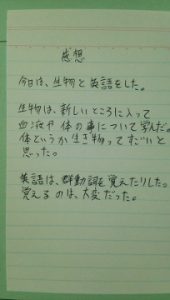 感想
今日は、生物と英語をした。
生物は、新しいところに入って
血液や体の事について学んだ。
体というか生き物ってすごいと
思った。
英語は、群動詞を覚えたりした。
覚えるのは、大変だった。